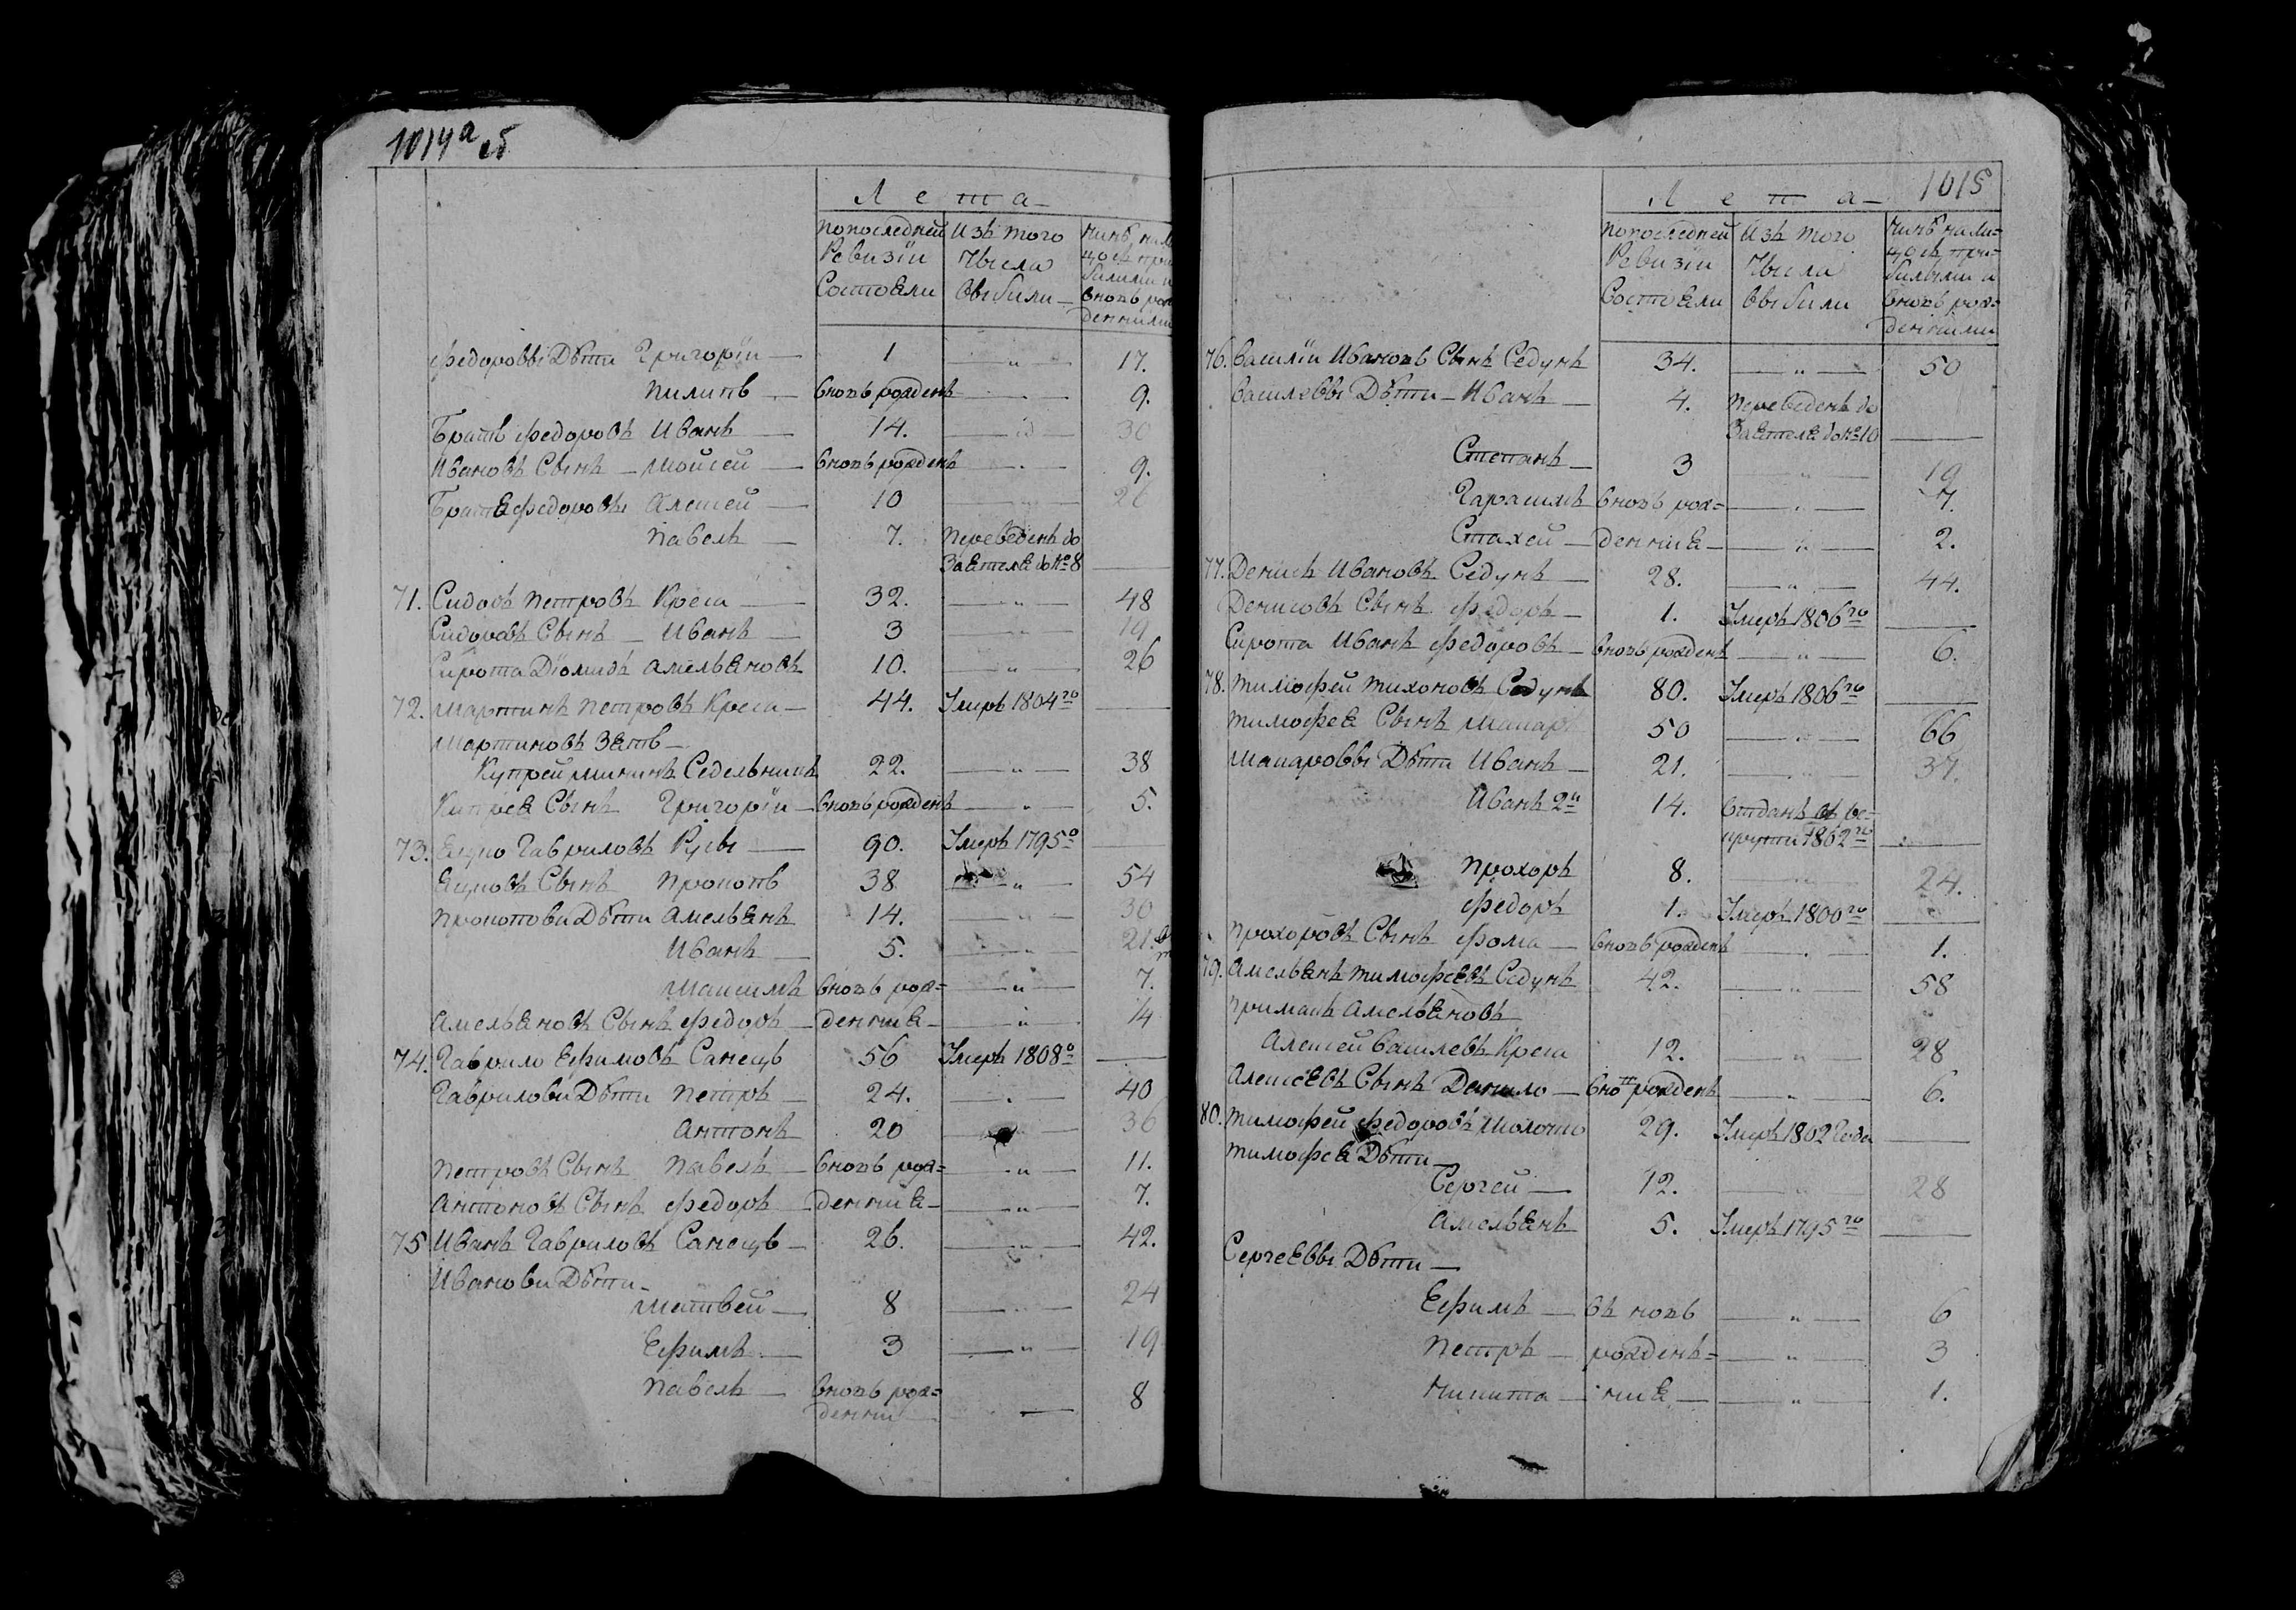 1014а об
Лета
По последней Ревизіи Состояли
Изъ того Числа выбыли
Федоровы Дѣти Григорій — 1 — „ — 17.
Пилипъ — вновь рожденъ — „ — 9.
Братъ Федоровъ Иванъ — 14. — „ — 30
Ивановъ Сынъ — Мойсей — вновь рожденъ — „ — 9.
Братья Федоровы Алексей — 10 — „ — 26
Павелъ — 7. Переведенъ до
Заятеля до № 8 —
71. Сидоръ Петровъ Креса — 32. — „ — 48
Сидоровъ Сынъ — Иванъ — 3 — „ — 19
Сирота Діомидъ Амельяновъ 10. — „ — 26
72. Мартинъ Петровъ Креса — 44. Умеръ 1804го —
Мартиновъ Зять —
Купрей Мининъ Седельникъ 22. — „ — 38
Купрея Сынъ Григорій — вновь рожденъ — „ — 5.
73. Яцко Гавриловъ — 90. Умеръ 1795о —
Яцковъ Сынъ Прокопъ 38 — „ — 54
Прокопови Дѣти Амельянъ 14. — „ — 30
Иванъ — 5. — „ — 21.
Максимъ вновь рож= — „ — 7.
Амельяновъ Сынъ Федоръ — деннія — „ — 14
74. Гаврило Ефимовъ Санецъ 56 Умеръ 1808о —
Гаврилови Дѣти Петръ — 24. — „ — 40
Антонъ 20 — „ — 36
Петровъ Сынъ Павелъ — вновь рож= — „ — 11.
Антоновъ Сынъ Федоръ — деннія — „ — 7.
75 Иванъ Гавриловъ Санецъ — 26. — „ — 42.
Иванови Дѣти —
Матвей — 8 — „ — 24
Ефимъ — 3 — „ — 19
Павелъ — вновь рож=
денни — „ — 8
1015
Лета
По последней Ревизіи Состояли
Изъ того Числа выбыли
Нинѣ нали=цось, при=былыми и вновь рож=денними
76. Василій Ивановъ Сынъ Седунъ 34. — „ — 50
Василевы Дѣти — Иванъ — 4. Переведенъ до
Заятеля до № 10 —
Степанъ — 3 — „ — 19
Гарасимъ вновь рож= — „ — 7.
Стахей — деннія — „ — 2.
77. Денисъ Ивановъ Седунъ — 28. — „ — 44.
Денисовъ Сынъ Федоръ — 1. Умеръ 1806го —
Сирота Иванъ Федоровъ — вновь рожденъ — „ — 6.
78. Тимофей Тихоновъ Седунъ 80. Умеръ 1806го —
Тимофея Сынъ Макаръ 50 — „ — 66
Макаровы Дѣти Иванъ — 21. — „ — 37.
Иванъ 2й 14. Отданъ въ ре=
крути 1802го —
Прохоръ 8. — „ — 24.
Федоръ 1. Умеръ 1800го —
Прохоровъ Сынъ Фома — вновь рожденъ — „ — 1.
79. Амельянъ Тимофеевъ Седунъ 42. — „ — 58
Примакъ Амельяновъ
Алексей Василевъ Креса 12. — „ — 28
Алексеевъ Сынъ Данило — вновь рожденъ — „ — 6.
80. Тимофей Федоровъ Молочко 29. Умеръ 1802 Года —
Тимофея Дѣти —
Сергей — 12. — „ — 28
Амельянъ 5. Умеръ 1795го —
Сергеевы Дѣти —
Ефимъ — въ новь — „ — 6
Петръ — рожденъ= — „ — 3
Никита — нія — „ — 1.